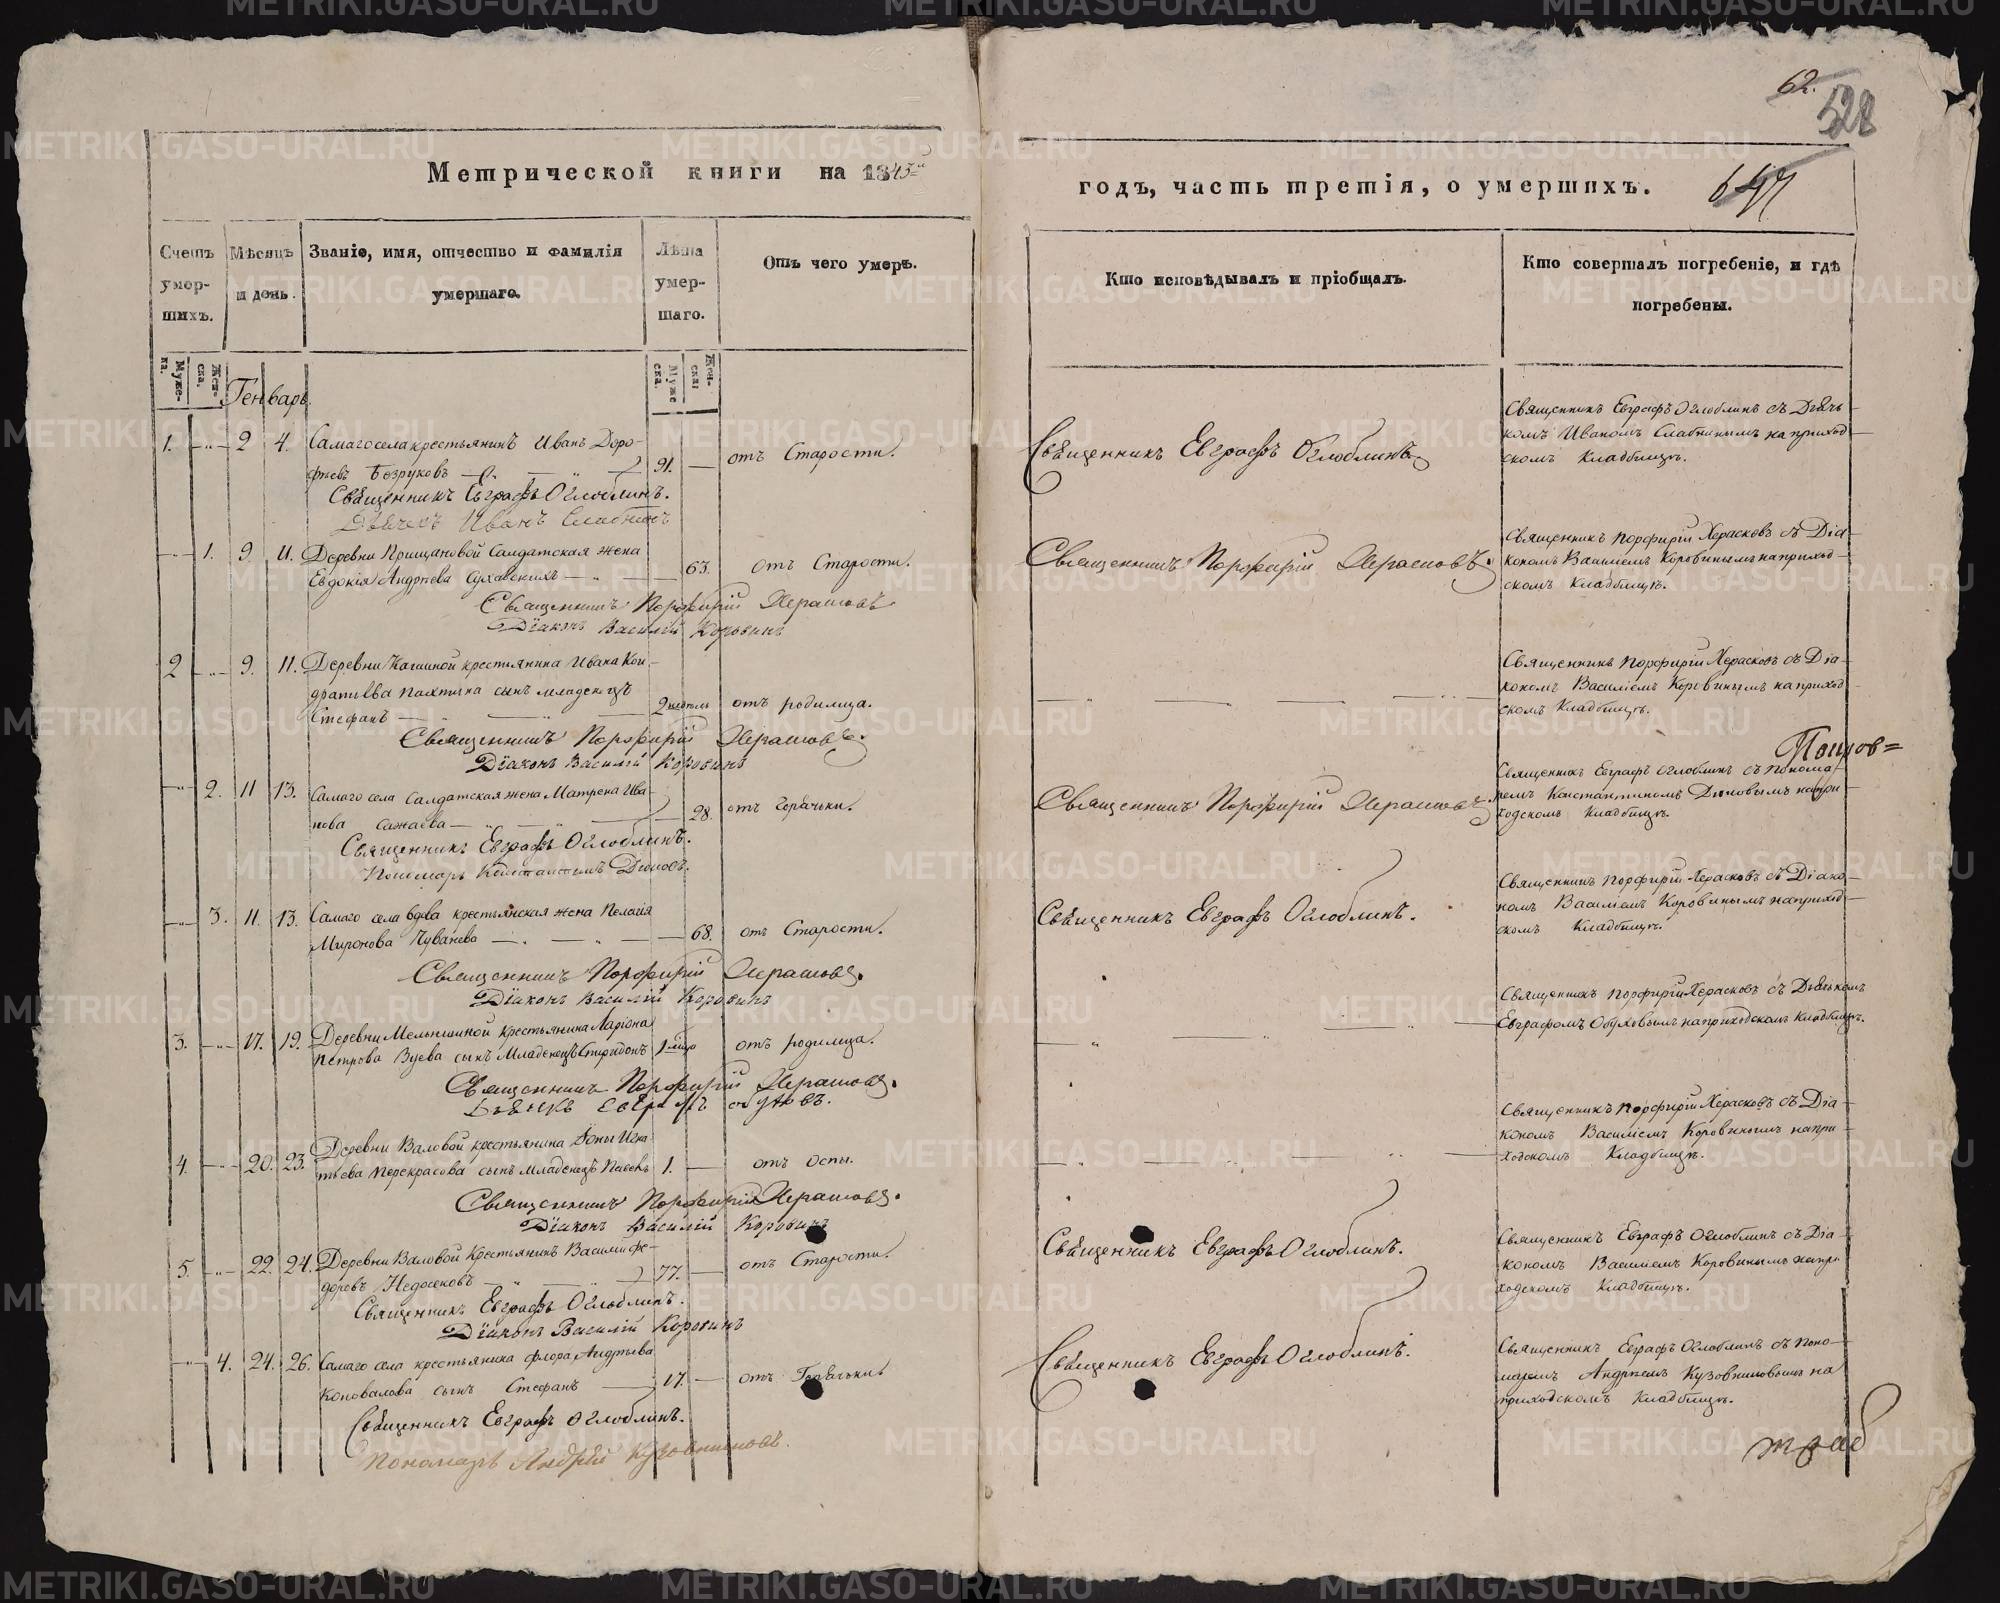 62.
528
647
Метрической книги на 1843
годъ, часть третія, о умершихъ.
Счетъ умер-шихъ.
Мѣсяцъ и день.
Званіе, имя, отчество и фамилія умершаго.
Лѣта умер-шаго.
Отъ чего умеръ.
Кто исповѣдывалъ и пріобщалъ.
Кто совершалъ погребеніе, и гдѣ погребены.
Муже-ска. Жен-ска.
Муже ска. Жен-ска:
Генварь.
1. 2 4. Самаго села крестьянинъ Иванъ Доро-
фѣевъ Безруковъ 91. отъ Старости.
Священникъ Евграфъ Оглоблинъ.
Дьячекъ Иванъ Слабнинъ
Священникъ Евграфъ Оглоблинъ.
Священникъ Евграфъ Оглоблинъ съ Дьячь-
комъ Иваномъ Слабнинымъ на приход-
скомъ кладбищѣ.
1. 9 11. Деревни Прищановой Салдатская жена
Евдокія Андрѣева 63. отъ Старости.
Священникъ Порфирій Херасковъ
Діаконъ Василій Коровинъ
Священникъ Порфирій Херасковъ.
Священникъ Порфирій Херасковъ съ Діа-
кономъ Василіемъ Коровинымъ на приход-
скомъ кладбищѣ.
2 9. 11. Деревни Кашиной крестьянина Ивана Кон-
дратьева Пахтина сынъ младенецъ
Стефанъ 2 недѣль отъ родимца.
Священникъ Порфирій Херасковъ.
Діаконъ Василій Коровинъ
Священникъ Порфирій Херасковъ съ Діа-
кономъ Василіемъ Коровинымъ на приход-
скомъ кладбищѣ.
2. 11 13. Самаго села Салдатская жена Матрена Ива-
нова 28. отъ горячьки.
Священникъ Евграфъ Оглоблинъ.
Пономарь Константинъ
Священникъ Порфирій Херасковъ
Священникъ Евграфъ Оглоблинъ съ Понома-
ремъ Константиномъ на при-
ходскомъ кладбищѣ.
3. 11. 13. Самаго села вдова крестьянская жена Пелагія
Миронова Чуванева 68. отъ Старости.
Священникъ Порфирій Херасковъ.
Діаконъ Василій Коровинъ
Священникъ Евграфъ Оглоблинъ.
Священникъ Порфирій Херасковъ съ Діако-
номъ Василіемъ Коровинымъ на приход-
скомъ кладбищѣ.
3. 17. 19. Деревни Мельниной крестьянина Ларіона
Петрова Зуева сынъ Младенецъ Спиридонъ отъ родимца.
Священникъ Порфирій Херасковъ.
Дьячекъ Евграфъ Обуховъ.
Священникъ Порфирій Херасковъ съ Дьячькомъ
Евграфомъ Обуховымъ на приходскомъ кладбищѣ.
4. 20. 23. Деревни Валовой крестьянина Іоны Игна-
тьева Перекрасова сынъ младенецъ 1. отъ оспы.
Священникъ Порфирій Херасковъ.
Діаконъ Василій Коровинъ
Священникъ Порфирій Херасковъ съ Діа-
кономъ Василіемъ Коровинымъ на при-
ходскомъ кладбищѣ.
5. 22. 24. Деревни Валовой Крестьянинъ Василій Фе-
доровъ Недосековъ 77. отъ Старости.
Священникъ Евграфъ Оглоблинъ.
Діаконъ Василій Коровинъ
Священникъ Евграфъ Оглоблинъ.
Священникъ Евграфъ Оглоблинъ съ Діа-
кономъ Василіемъ Коровинымъ на при-
ходскомъ кладбищѣ.
4. 24. 26. Самаго села крестьянина Флора Андрѣева
Коновалова сынъ Стефанъ 17. отъ Горячьки
Священникъ Евграфъ Оглоблинъ.
Пономарь Андрей Кузовниковъ.
Священникъ Евграфъ Оглоблинъ.
Священникъ Евграфъ Оглоблинъ съ Поно-
маремъ Андрѣемъ Кузовниковымъ на
приходскомъ кладбищѣ.
METRIKI.GASO-URAL.RU